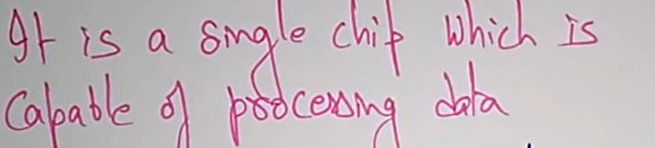 It is a single chip which is
Capable of processing data